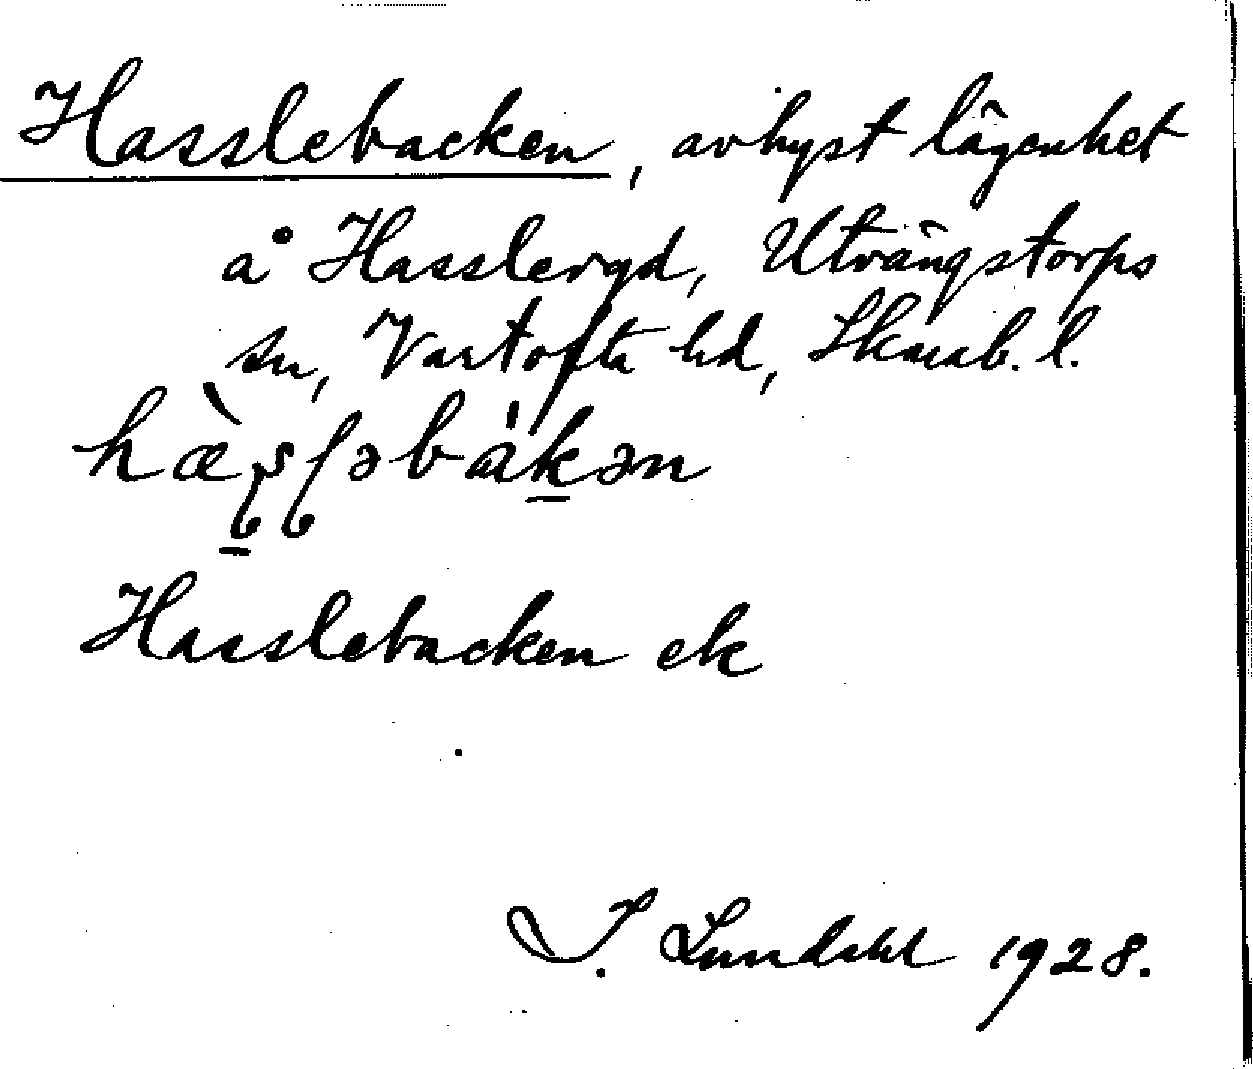 Hasslebacken, avhyst lägenhet
å Hassleryd, Utvängstorps
sn, Vartofta hd, Skarab. l.
Hasslebacken ek
I. Lundahl 1928.